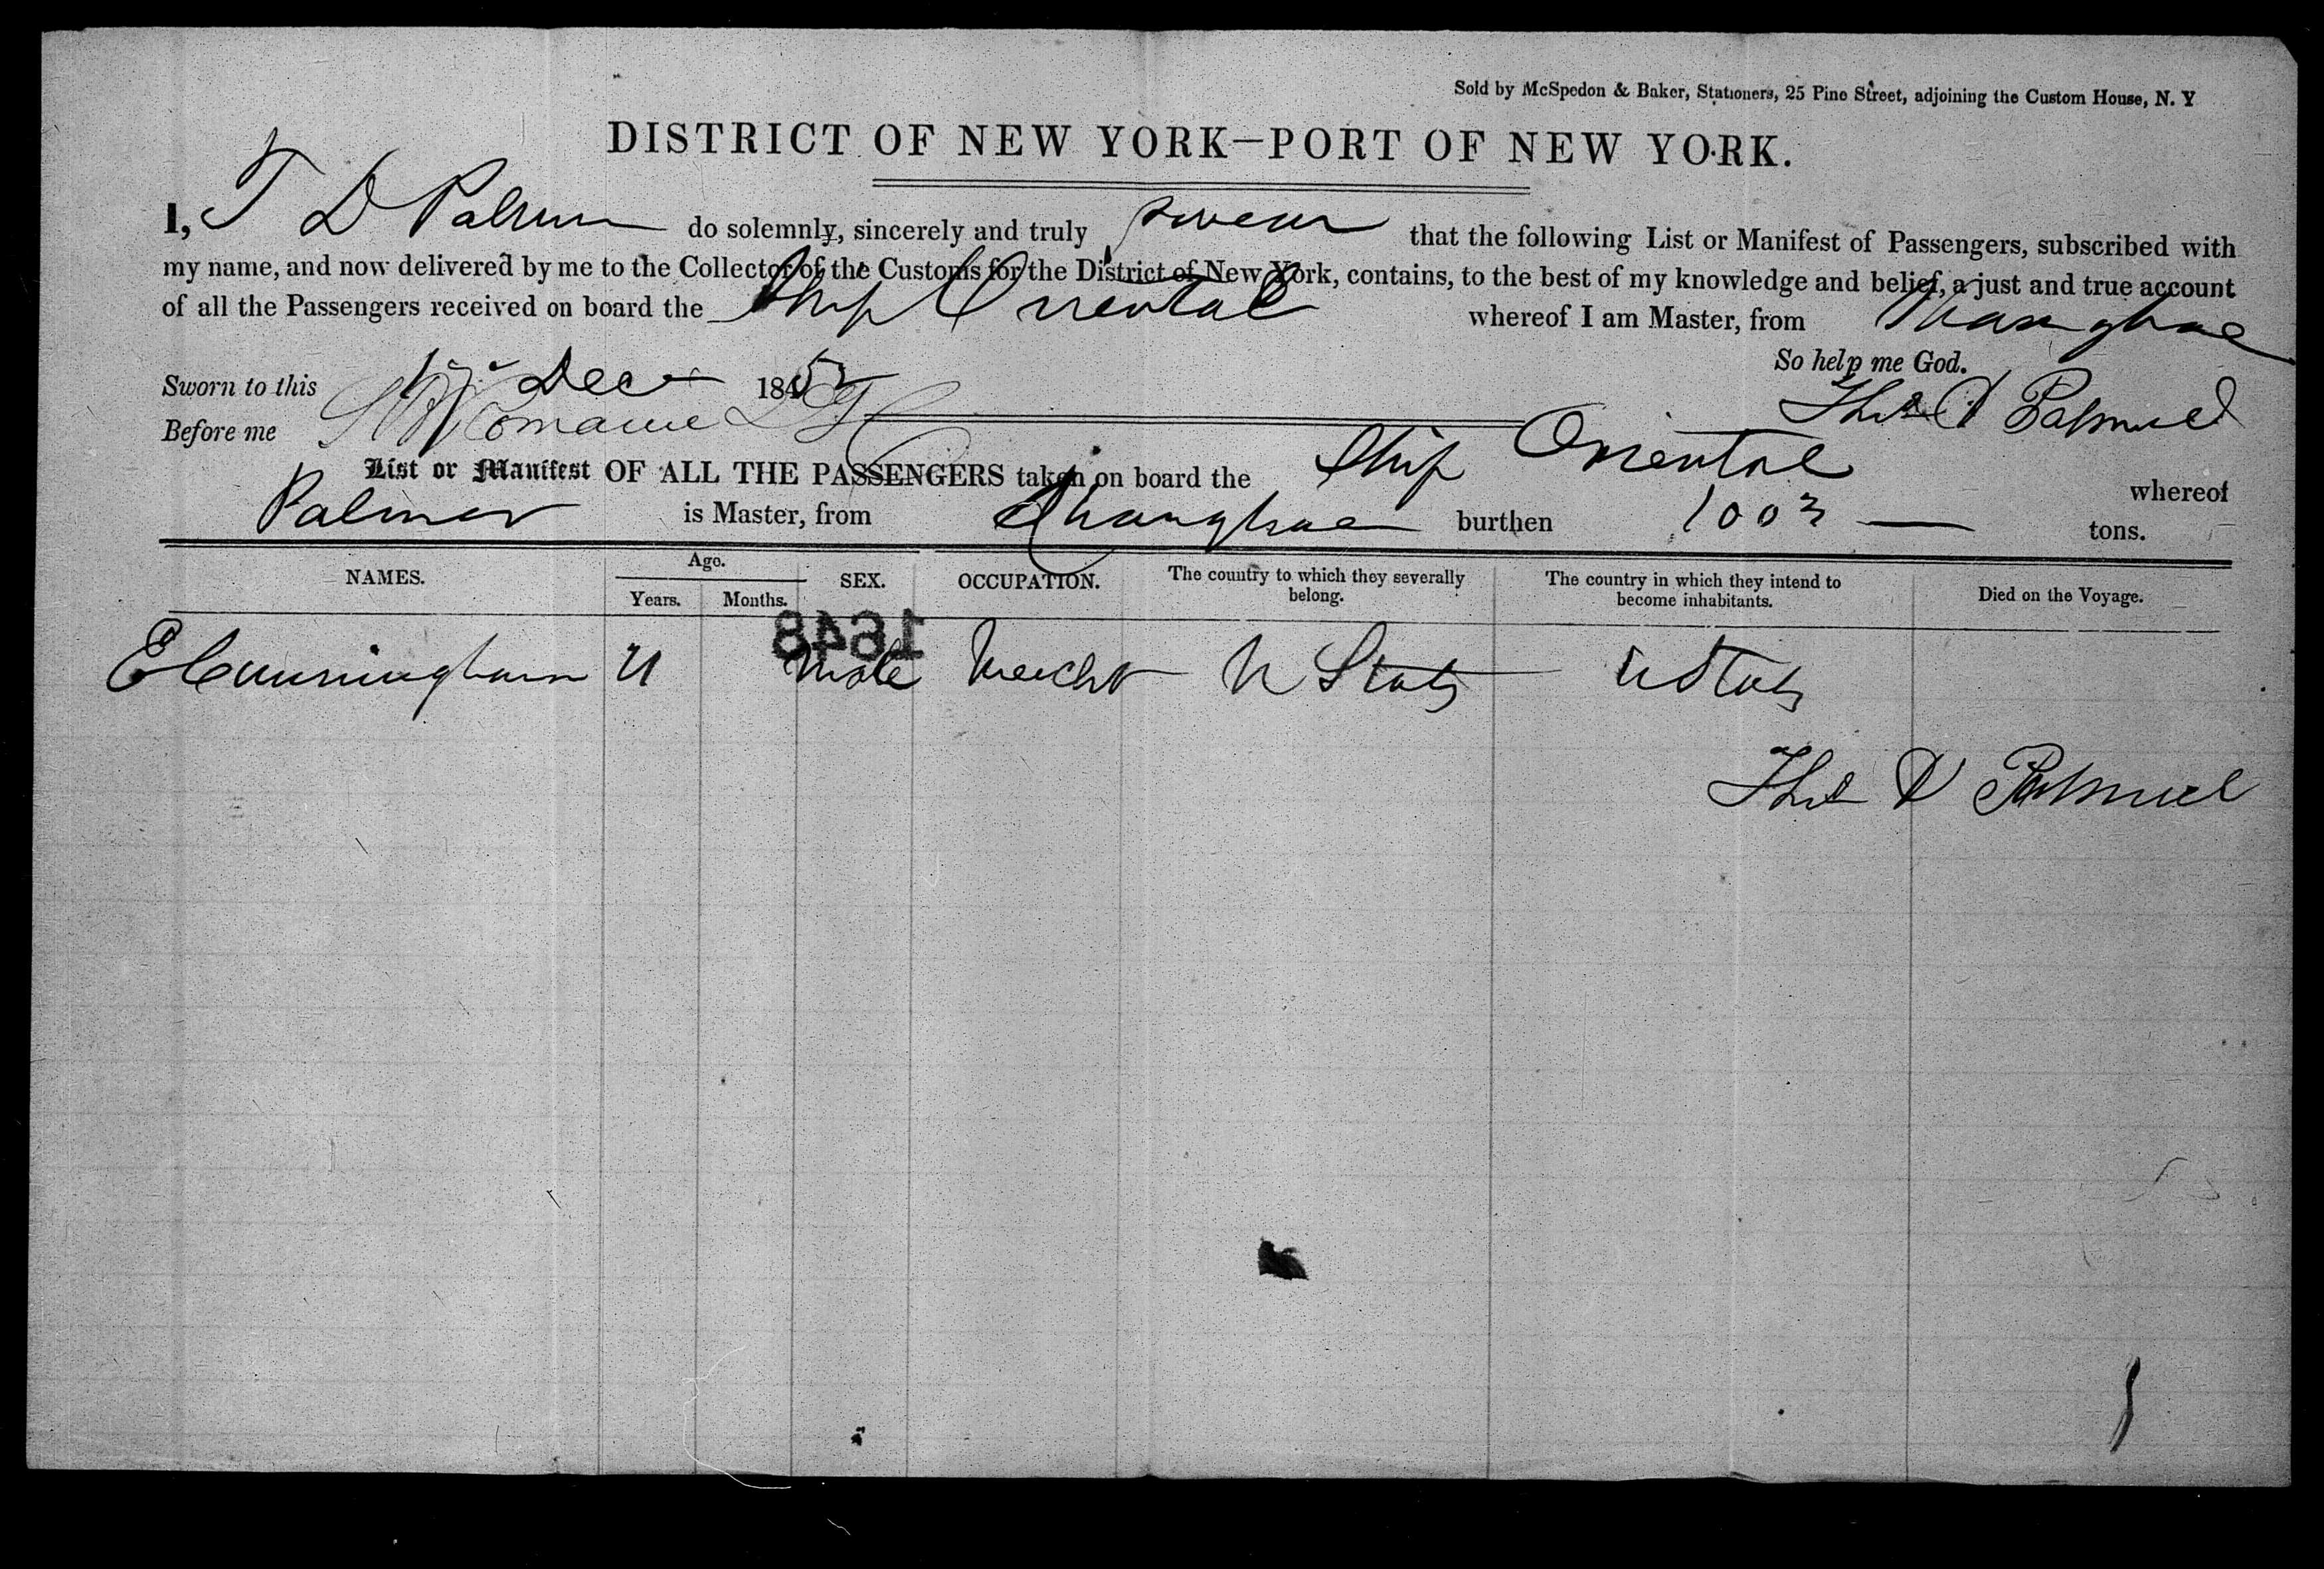 Sold by McSpedon & Baker, Stationers, 25 Pine Street, adjoining the Custom House, N. Y
DISTRICT OF NEW YORK—PORT OF NEW YORK.
I, T D Palmer do solemnly, sincerely and truly swear that the following List or Manifest of Passengers, subscribed with
my name, and now delivered by me to the Collector of the Customs for the District of New York, contains, to the best of my knowledge and belief, a just and true account
of all the Passengers received on board the Ship Oriental whereof I am Master, from Shanghae
So help me God.
Sworn to this Dec 185
Theo D Palmer
Before me
List or Manifest OF ALL THE PASSENGERS taken on board the Ship Oriental whereof
Palmer is Master, from Shanghae burthen 1003 tons.
NAMES. Age. Years. Months. SEX. OCCUPATION. The country to which they severally belong. The country in which they intend to become inhabitants. Died on the Voyage.
1648
E Cunningham Male Mercht U States U States
Theo D Palmer